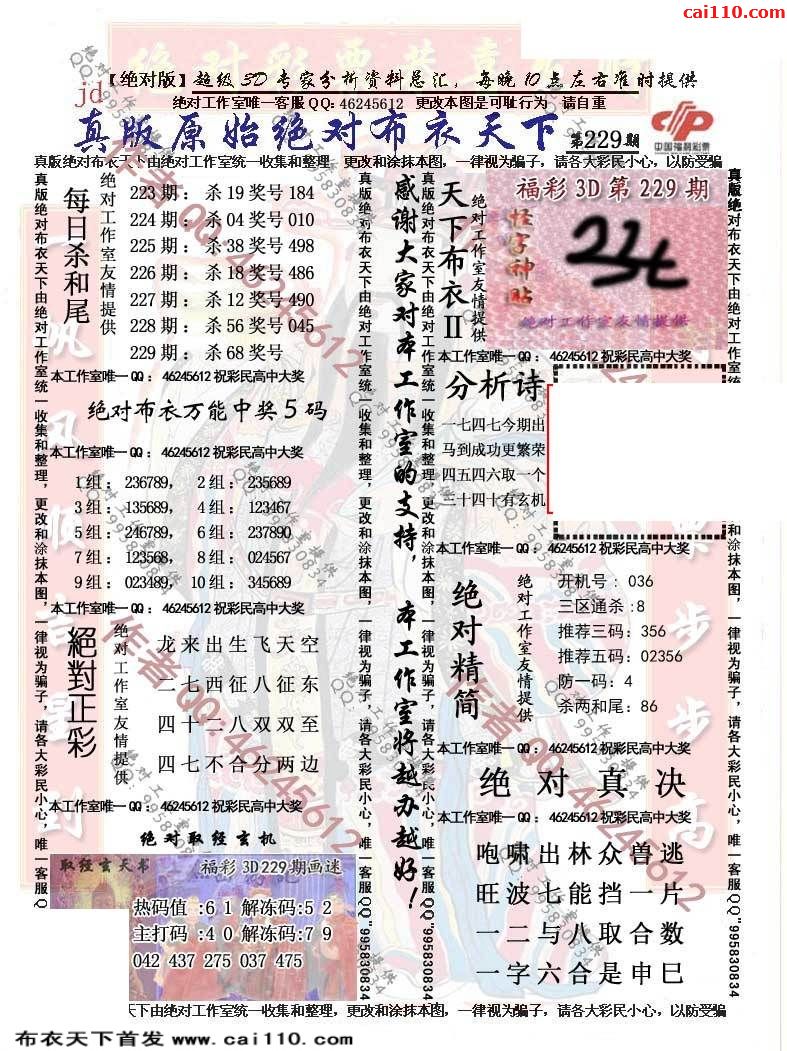 cai110.com
【绝对版】超级3D专家分析资料总汇，每晚10点左右准时提供
jd
绝对工作室唯一客服QQ：46245612 更改本图是可耻行为 请自重
真版原始绝对布衣天下 第229期
中国福利彩票
真版绝对布衣天下由绝对工作室统一收集和整理，更改和涂抹本图，一律视为骗子，请各大彩民小心，以防受骗
真版绝对布衣天下由绝对工作室统一收集和整理，更改和涂抹本图，一律视为骗子，请各大彩民小心，唯一客服Q
每日杀和尾
绝对工作室友情提供
223期：杀19奖号184
224期：杀04奖号010
225期：杀38奖号498
226期：杀18奖号486
227期：杀12奖号490
228期：杀56奖号045
229期：杀68奖号
本工作室唯一QQ：46245612祝彩民高中大奖
绝对布衣万能中奖5码
本工作室唯一QQ：46245612祝彩民高中大奖
1组：236789，2组：235689
3组：135689，4组：123467
5组：246789，6组：237890
7组：123568，8组：024567
9组：023489，10组：345689
本工作室唯一QQ：46245612祝彩民高中大奖
絕對正彩
绝对工作室友情提供
龙来出生飞天空
二七西征八征东
四十二八双双至
四七不合分两边
本工作室唯一QQ：46245612祝彩民高中大奖
绝对取经玄机
取经玄天书
福彩3D229期画迷
热码值:61解冻码:52
主打码:40解冻码:79
042 437 275 037 475
真版绝对布衣天下由绝对工作室统一收集和整理，更改和涂抹本图，一律视为骗子，请各大彩民小心，唯一客服QQ"995830834
感谢大家对本工作室的支持，本工作室将越办越好！
真版绝对布衣天下由绝对工作室统一收集和整理，更改和涂抹本图，一律视为骗子，请各大彩民小心，唯一客服QQ"995830834
天下布衣II
绝对工作室友情提供
福彩3D第229期
怪字神贴
绝对工作室友情提供
本工作室唯一QQ：46245612祝彩民高中大奖
分析诗
一七四七今期出
马到成功更繁荣
四五四六取一个
三十四十有玄机
本工作室唯一QQ：46245612祝彩民高中大奖
绝对精简
绝对工作室友情提供
开机号：036
三区通杀:8
推荐三码：356
推荐五码：02356
防一码：4
杀两和尾：86
本工作室唯一QQ：46245612祝彩民高中大奖
绝对真决
本工作室唯一QQ：46245612祝彩民高中大奖
咆啸出林众兽逃
旺波七能挡一片
一二与八取合数
一字六合是申巳
真版绝对布衣天下由绝对工作室统
和涂抹本图，一律视为骗子，请各大彩民小心，唯一客服QQ"995830834
天下由绝对工作室统一收集和整理，更改和涂抹本图，一律视为骗子，请各大彩民小心，以防受骗
布衣天下首发 www.cai110.com
作者QQ:46245612
绝对工作室提供
QQ:995830834